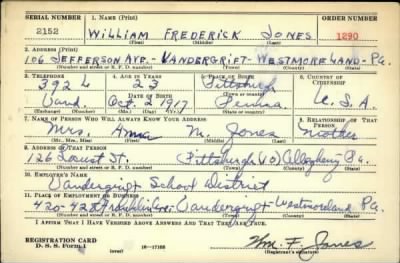 SERIAL NUMBER 1. NAME (Print) ORDER NUMBER
2152 WILLIAM FREDERICK JONES 1290
(First) (Middle) (Last)
2. ADDRESS (Print)
106 JEFFERSON AVE.- VANDERGRIFT- WESTMORELAND- PA.
(Number and street or R. F. D. number) (Town) (County) (State)
3. TELEPHONE 4. AGE IN YEARS 5. PLACE OF BIRTH 6. COUNTRY OF CITIZENSHIP
392 23 Pittsburgh
DATE OF BIRTH (Town or county)
Vand. Oct. 2 1917 Penna. U. S. A.
(Exchange) (Number) (Mo.) (Day) (Yr.) (State or country)
7. NAME OF PERSON WHO WILL ALWAYS KNOW YOUR ADDRESS 8. RELATIONSHIP OF THAT PERSON
Mrs. Anna M. Jones Mother
(Mr., Mrs., Miss) (First) (Middle) (Last)
9. ADDRESS OF THAT PERSON
126 Locust St. Pittsburgh (10) Allegheny Pa.
(Number and street or R. F. D. number) (Town) (County) (State)
10. EMPLOYER'S NAME
Vandergrift School District
11. PLACE OF EMPLOYMENT OR BUSINESS
420-422 Franklin Ave. Vandergrift- Westmoreland Pa.
(Number and street or R. F. D. number) (Town) (County) (State)
I AFFIRM THAT I HAVE VERIFIED ABOVE ANSWERS AND THAT THEY ARE TRUE.
REGISTRATION CARD
D. S. S. Form 1 (over) 16-17105 Wm. F. Jones
(Registrant's signature)